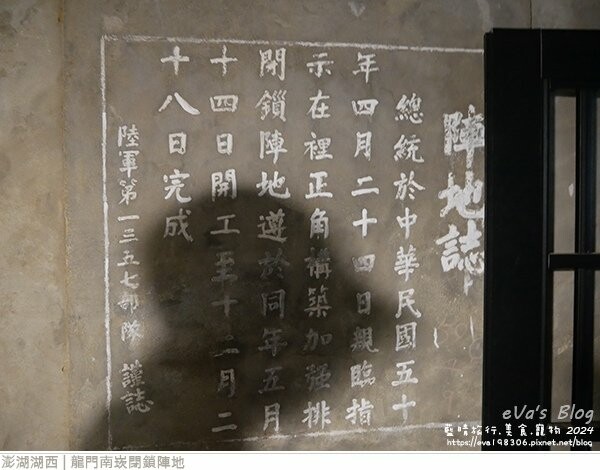 陣地誌
總統於中華民國五十
年四月二十四日親臨指
示在裡正角構築加强排
閉鎖陣地遵於同年五月
十四日開工至十月二
十八日完成
陸軍第一三五七部隊 謹誌
eVa's Blog
藍晴旅行.美食.寵物 2024
https://eva198306.pixnet.net/blog
澎湖湖西 | 龍門南崁閉鎖陣地